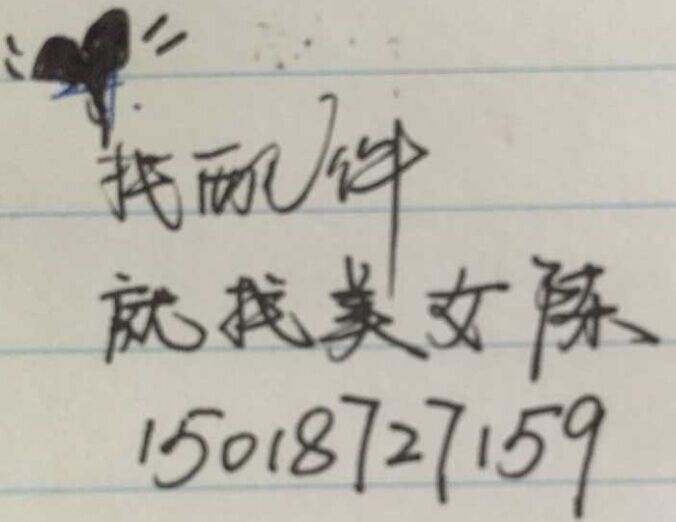 找配件
就找美女陈
15018727159